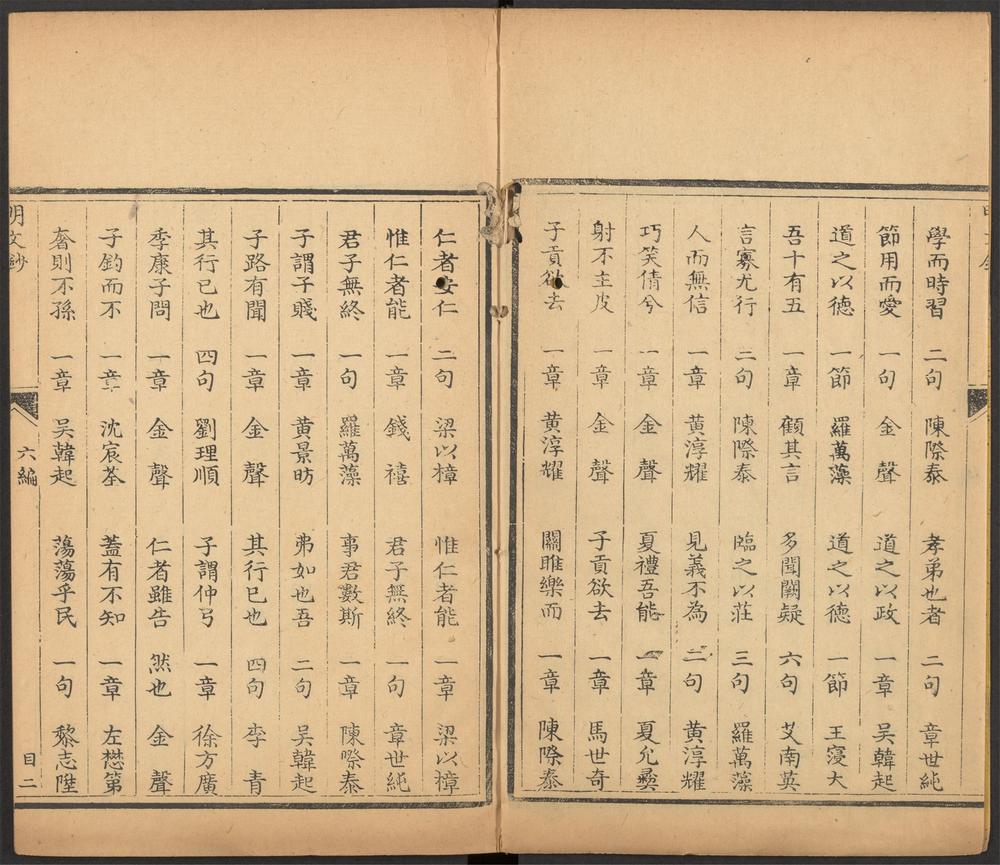 學而時習 二句 陳際泰 孝弟也者 二句 章世純
節用而愛 一句 金聲 道之以政 一章 吴韓起
道之以德 一節 羅萬藻 道之以德 一節 王寖大
吾十有五 一章 顧其言 多聞闕疑 六句 艾南英
言寡尤行 二句 陳際泰 臨之以莊 三句 羅萬藻
人而無信 一章 黄淳耀 見義不為 二句 黄淳耀
巧笑倩兮 一章 金聲 夏禮吾能 一章 夏允彝
射不主皮 一章 金聲 子貢欲去 一章 馬世奇
子貢欲去 一章 黄淳耀 關雎樂而 一章 陳際泰
仁者安仁 二句 梁以樟 惟仁者能 一章 梁以樟
惟仁者能 一章 錢禧 君子無終 一句 章世純
君子無終 一句 羅萬藻 事君數斯 一章 陳際泰
子謂子賤 一章 黄景昉 弗如也吾 二句 吴韓起
子路有聞 一章 金聲 其行已也 四句 李青
其行已也 四句 劉理順 子謂仲弓 一章 徐方廣
季康子問 一章 金聲 仁者雖告 然也 金聲
子釣而不 一章 沈宸荃 蓋有不知 一章 左懋第
奢則不孫 一章 吴韓起 蕩蕩乎民 一句 黎志陞
明文鈔 六編 目二